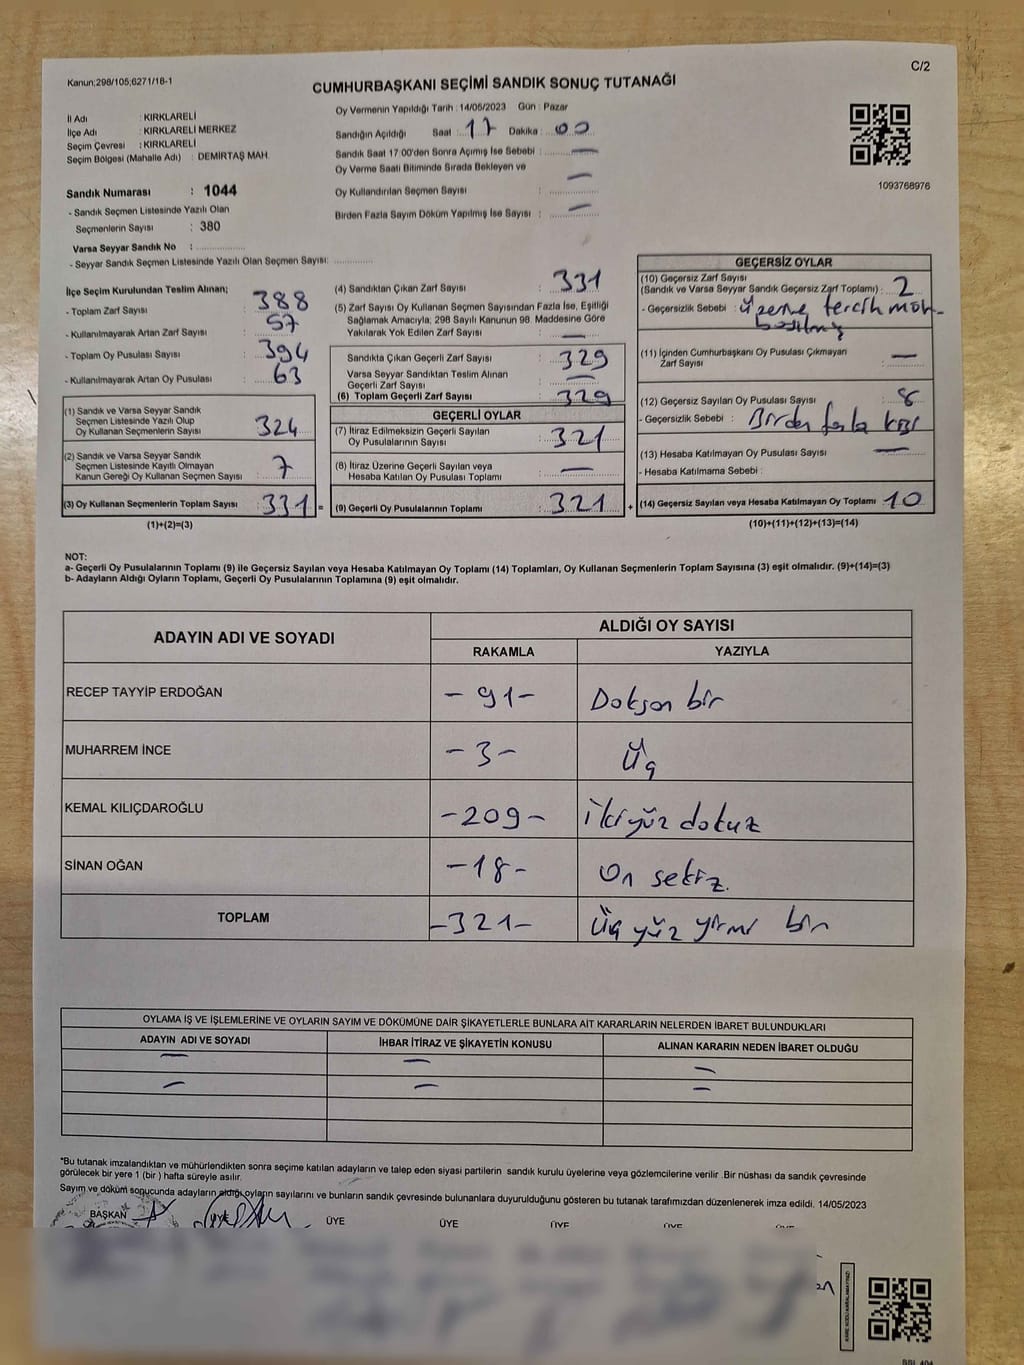 Kanun;298/105;6271/18-1
C/2
CUMHURBAŞKANI SEÇİMİ SANDIK SONUÇ TUTANAĞI
İl Adı : KIRKLARELİ
İlçe Adı : KIRKLARELİ MERKEZ
Seçim Çevresi : KIRKLARELİ
Seçim Bölgesi (Mahalle Adı) : DEMİRTAŞ MAH.
Oy Vermenin Yapıldığı Tarih : 14/05/2023 Gün : Pazar
Sandığın Açıldığı Saat : 17 Dakika : 00
Sandık Saat 17:00'den Sonra Açımış İse Sebebi : —
Oy Verme Saati Bitiminde Sırada Bekleyen ve
Oy Kullandırılan Seçmen Sayısı : —
Birden Fazla Sayım Döküm Yapılmış İse Sayısı : —
1093768976
Sandık Numarası : 1044
- Sandık Seçmen Listesinde Yazılı Olan
Seçmenlerin Sayısı : 380
Varsa Seyyar Sandık No :
- Seyyar Sandık Seçmen Listesinde Yazılı Olan Seçmen Sayısı:
İlçe Seçim Kurulundan Teslim Alınan;
- Toplam Zarf Sayısı : 388
- Kullanılmayarak Artan Zarf Sayısı : 57
- Toplam Oy Pusulası Sayısı : 394
- Kullanılmayarak Artan Oy Pusulası : 63
(1) Sandık ve Varsa Seyyar Sandık
Seçmen Listesinde Yazılı Olup
Oy Kullanan Seçmenlerin Sayısı : 324
(2) Sandık ve Varsa Seyyar Sandık
Seçmen Listesinde Kayıtlı Olmayan
Kanun Gereği Oy Kullanan Seçmen Sayısı : 7
(3) Oy Kullanan Seçmenlerin Toplam Sayısı : 331 =
(1)+(2)=(3)
(4) Sandıktan Çıkan Zarf Sayısı : 331
(5) Zarf Sayısı Oy Kullanan Seçmen Sayısından Fazla İse, Eşitliği
Sağlamak Amacıyla; 298 Sayılı Kanunun 98. Maddesine Göre
Yakılarak Yok Edilen Zarf Sayısı : —
Sandıkta Çıkan Geçerli Zarf Sayısı : 329
Varsa Seyyar Sandıktan Teslim Alınan
Geçerli Zarf Sayısı : —
(6) Toplam Geçerli Zarf Sayısı : 329
GEÇERLİ OYLAR
(7) İtiraz Edilmeksizin Geçerli Sayılan
Oy Pusulalarının Sayısı : 321
(8) İtiraz Üzerine Geçerli Sayılan veya
Hesaba Katılan Oy Pusulası Toplamı : —
(9) Geçerli Oy Pusulalarının Toplamı : 321 +
GEÇERSİZ OYLAR
(10) Geçersiz Zarf Sayısı
(Sandık ve Varsa Seyyar Sandık Geçersiz Zarf Toplamı) : 2
- Geçersizlik Sebebi : üzerine tercih müh-
basılmış
(11) İçinden Cumhurbaşkanı Oy Pusulası Çıkmayan
Zarf Sayısı : —
(12) Geçersiz Sayılan Oy Pusulası Sayısı : 8
- Geçersizlik Sebebi : Birden fazla kişi
(13) Hesaba Katılmayan Oy Pusulası Sayısı : —
- Hesaba Katılmama Sebebi :
(14) Geçersiz Sayılan veya Hesaba Katılmayan Oy Toplamı : 10
(10)+(11)+(12)+(13)=(14)
NOT:
a- Geçerli Oy Pusulalarının Toplamı (9) ile Geçersiz Sayılan veya Hesaba Katılmayan Oy Toplamı (14) Toplamları, Oy Kullanan Seçmenlerin Toplam Sayısına (3) eşit olmalıdır. (9)+(14)=(3)
b- Adayların Aldığı Oyların Toplamı, Geçerli Oy Pusulalarının Toplamına (9) eşit olmalıdır.
ADAYIN ADI VE SOYADI
ALDIĞI OY SAYISI
RAKAMLA YAZIYLA
RECEP TAYYİP ERDOĞAN -91- Doksan bir
MUHARREM İNCE -3- Üç
KEMAL KILIÇDAROĞLU -209- ikiyüz dokuz
SİNAN OĞAN -18- On sekiz.
TOPLAM -321- Üç yüz yirmi bir
OYLAMA İŞ VE İŞLEMLERİNE VE OYLARIN SAYIM VE DÖKÜMÜNE DAİR ŞİKAYETLERLE BUNLARA AİT KARARLARIN NELERDEN İBARET BULUNDUKLARI
ADAYIN ADI VE SOYADI İHBAR İTİRAZ VE ŞİKAYETİN KONUSU ALINAN KARARIN NEDEN İBARET OLDUĞU
— — —
— — —
*Bu tutanak imzalandıktan ve mühürlendikten sonra seçime katılan adayların ve talep eden siyasi partilerin sandık kurulu üyelerine veya gözlemcilerine verilir .Bir nüshası da sandık çevresinde
görülecek bir yere 1 (bir ) hafta süreyle asılır.
Sayım ve döküm sonucunda adayların aldığı oyların sayılarını ve bunların sandık çevresinde bulunanlara duyurulduğunu gösteren bu tutanak tarafımızdan düzenlenerek imza edildi. 14/05/2023
BAŞKAN ÜYE ÜYE ÜYE ÜYE ÜYE ÜYE